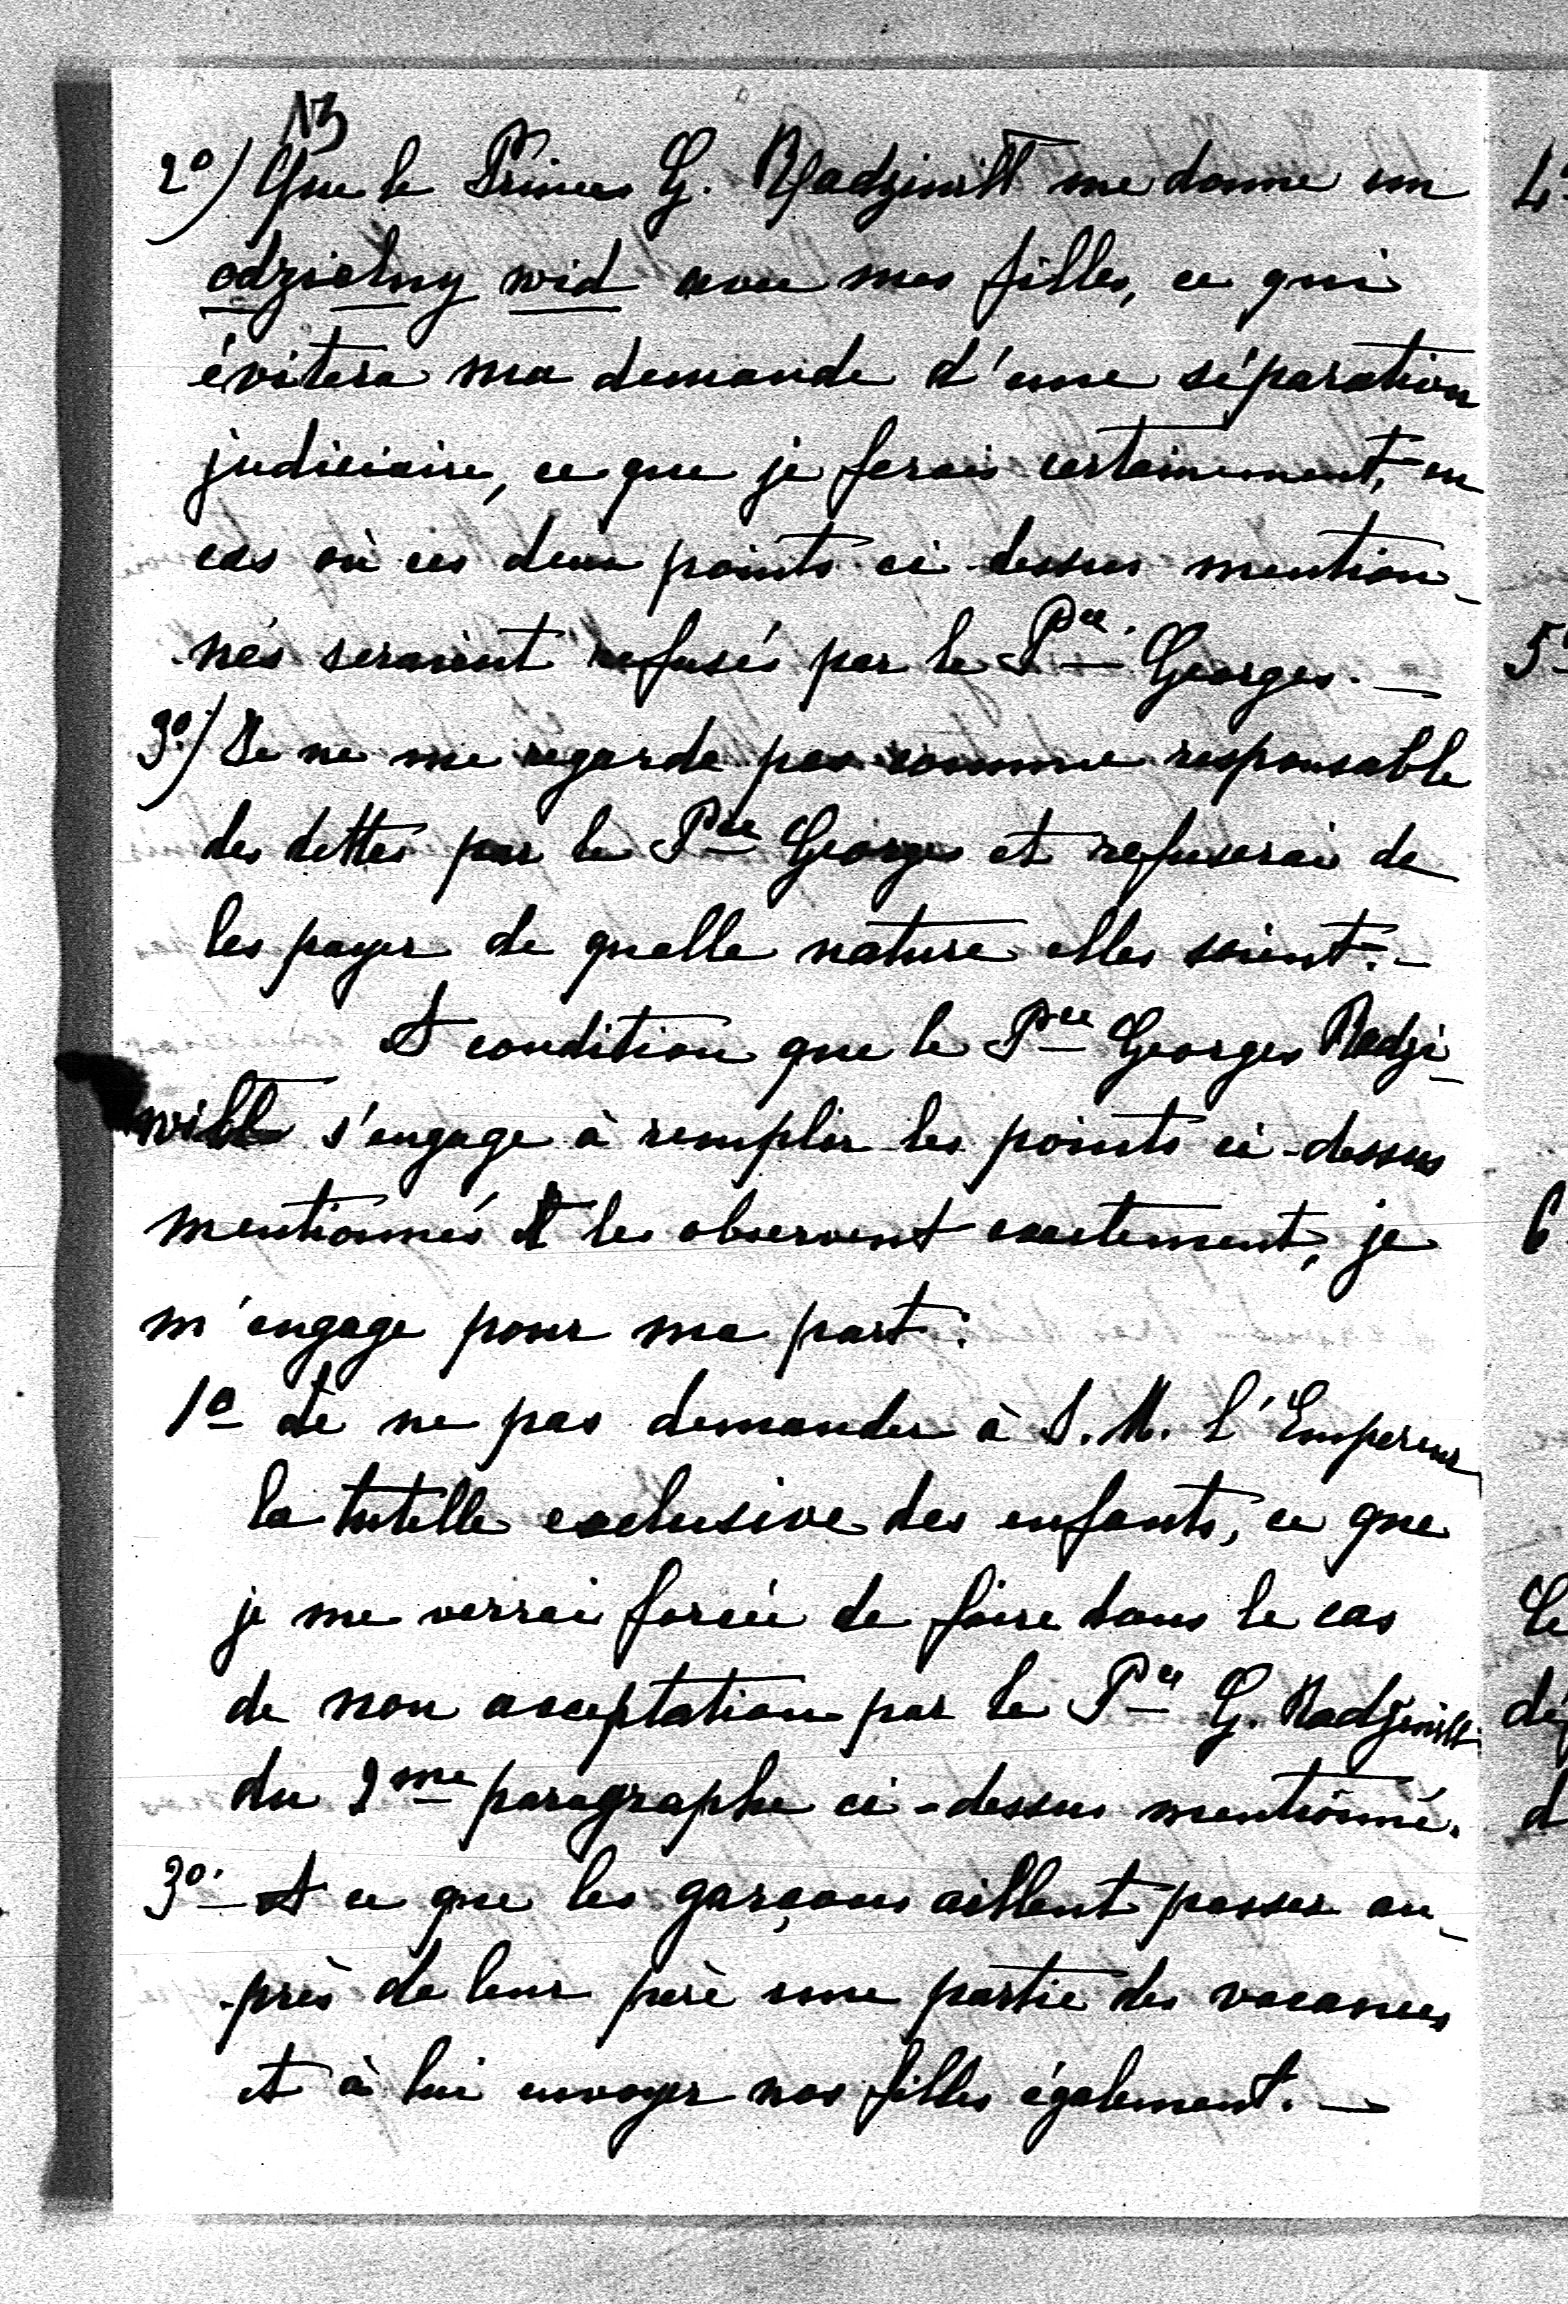 13
2º) Que le Prince G. Radziwill me donne un
odzielny wid avec mes filles, ce qui
évitera ma demande d'une séparation
judiciaire, ce que je ferai certainement, en
cas où ces deux points ci-dessus mention-
nés seraient refusés par le Pce. Georges. —
3º) Je ne me regarde pas comme responsable
des dettes par le Pce Georges et refuserai de
les payer de quelle nature elles soient. —
A condition que le Pce Georges Radzi-
will s'engage à remplir les points ci-dessus
mentionnés et les observent exactement, je
m'engage pour ma part:
1º de ne pas demander à S. M. l'Empereur
la tutelle exclusive des enfants, ce que
je me verrai forcée de faire dans le cas
de non acceptation par le Pce G. Radziwill
du 2me paragraphe ci-dessus mentionné.
3º. A ce que les garçons aillent passer au-
-près de leur père une partie des vacances
et à lui envoyer nos filles également. —
4º
5º
6
Le
de
d